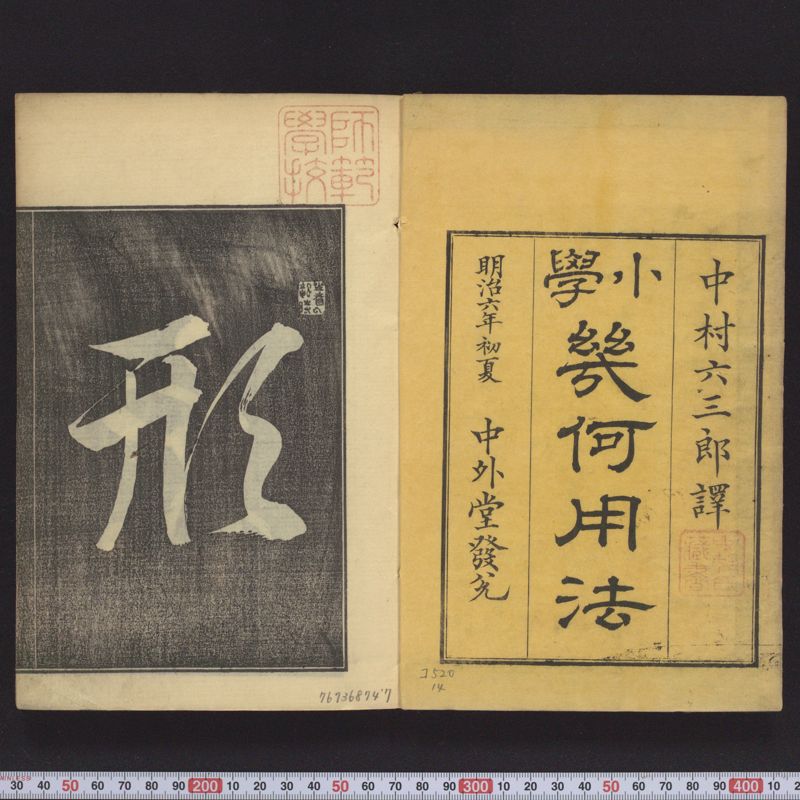 中村六三郎譯
小學幾何用法
明治六年初夏 中外堂發兌
師範
學校
形
76736874'7
ヨ520
14
30 40 50 60 70 80 90 200 10 20 30 40 50 60 70 80 90 300 10 20 30 40 50 60 70 80 90 400 10 2